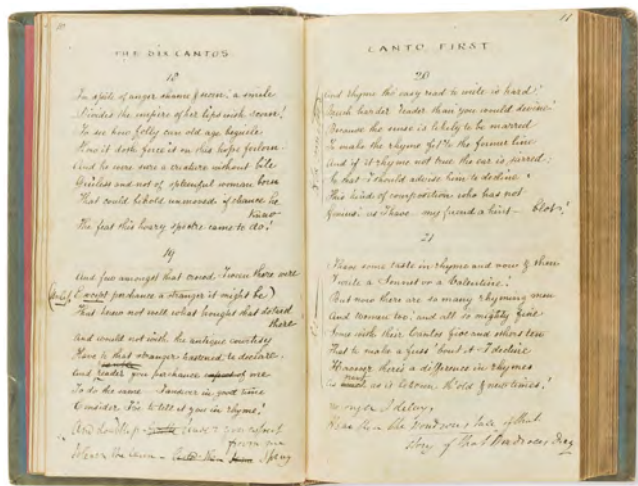 10
THE SIX CANTOS
18
In spite of anger shame & scorn: a smile
Divides the empire of her lips with scorn!
To see how folly can old age beguile
How it doth force it on this hope forlorn
And he were sure a creature without bile
Guileless and not of splenful woman born
That could behold unmoved if chance he
knew
The feat this hoary spectre came to do!
19
And few amongst that crowd I ween there were
(Unless) Except perchance a stranger it might be)
That knew not well what brought that dotard
there
And would not with the antique courtesy
Have to that stranger hastened to declare.
And reader you perchance of me
To do the same – I answer in good time
Consider I've to tell it you in rhyme!
And doubtless you
from me
When the
11
CANTO FIRST
20
And rhyme tho easy read to write is hard!
Much harder reader than you would divine!
Because the sense is likely to be marred
To make the rhyme fit to the former line
And if it rhyme not true the ear is jarred:
So that I should advise him to decline
This kind of composition who has not
Genius: as I have – my friend a hint – blot!
21
I have some taste in rhyme and now & then
I write a Sonnet or a Valentine!
But now there are so many rhyming men
And women too: and all so mighty fine
Some with their Cantos five and others ten
That to make a fuss 'bout it I decline
However there's a difference in rhymes
As much as is between th'old & new times!
no longer I delay,
Hear then the wondrous tale of that
story of that Day